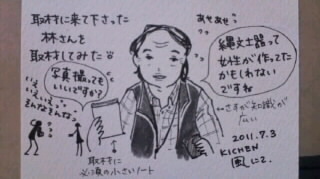 取材に来て下さった
林さんを
取材してみた
あせあせ
写真撮っても
いいですか?
いえ
いえいえ
そんなそんな
縄文土器って
女性が作ってた
かもしれない
ですね
…さすが知識が
広い
取材に
必須の小さいノート
2011.7.3
KICHEN
風にて.